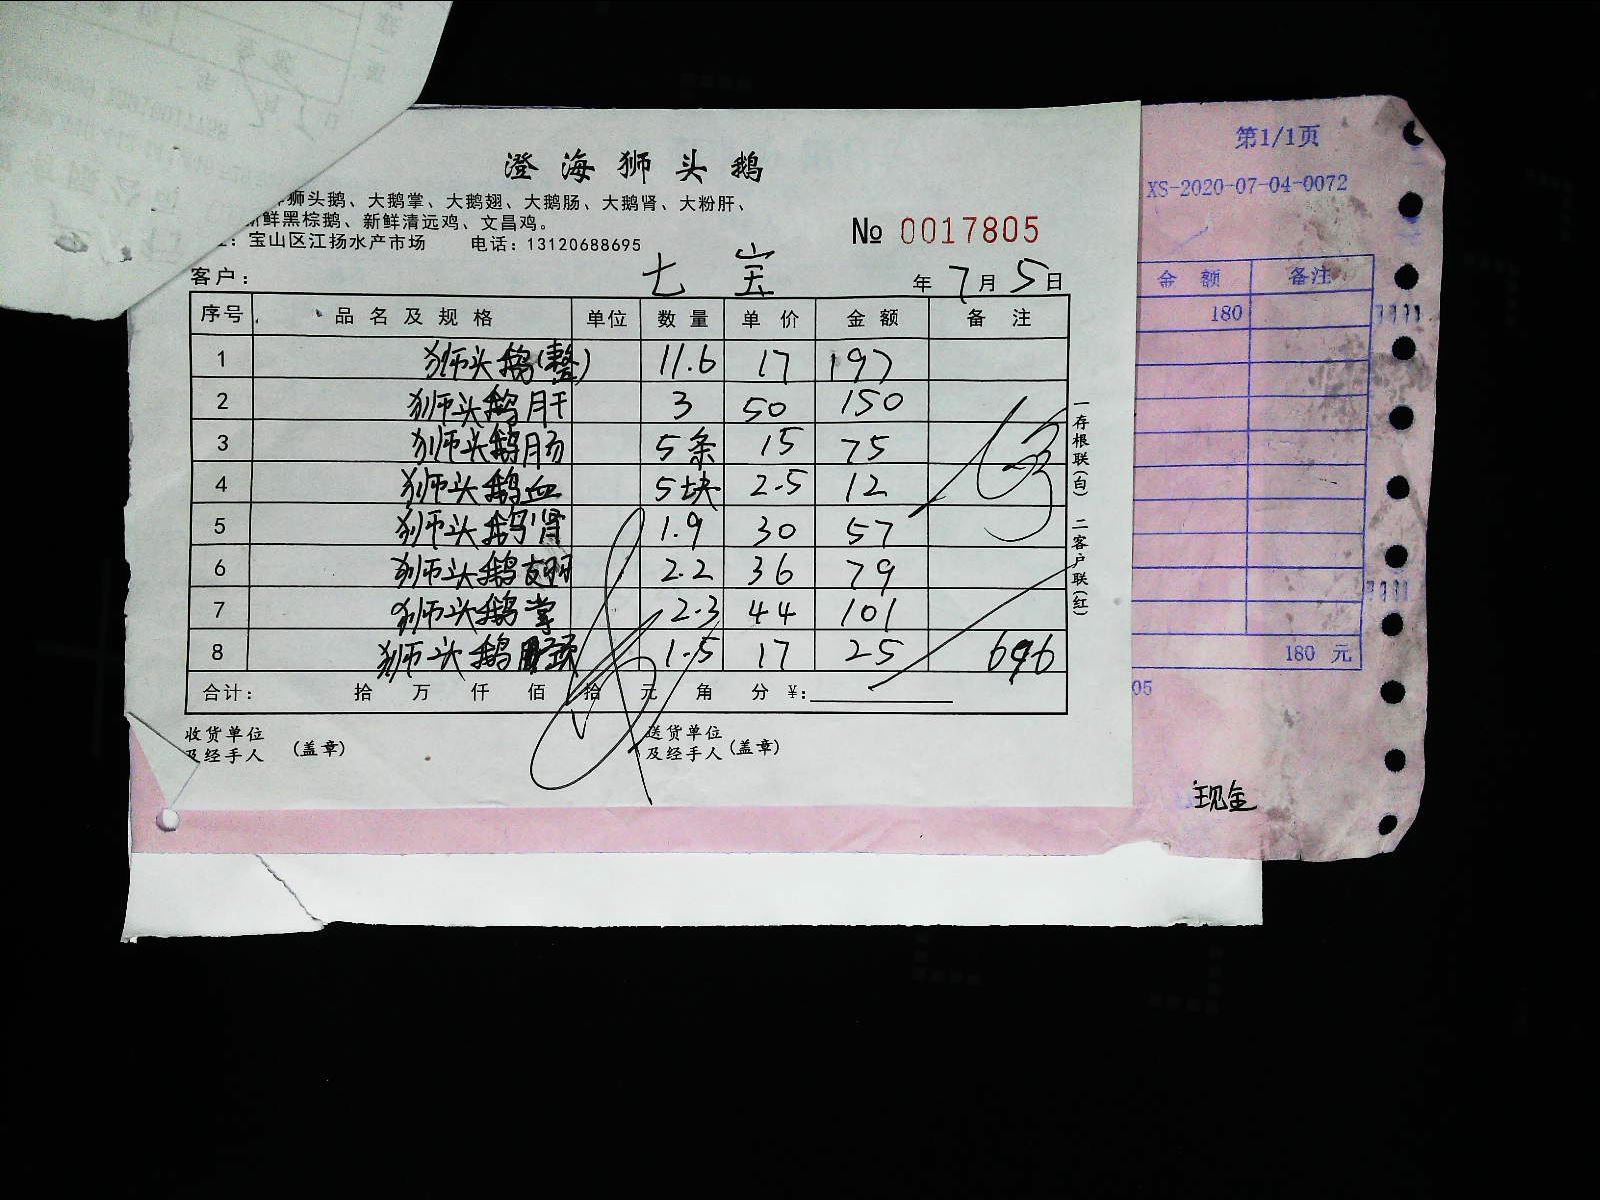 澄海狮头鹅
狮头鹅、大鹅掌、大鹅翅、大鹅肠、大鹅肾、大粉肝、
新鲜黑棕鹅、新鲜清远鸡、文昌鸡。
：宝山区江扬水产市场 电话：13120688695
№ 0017805
客户： 七宝 年 7 月 5 日
序号 品名及规格 单位 数量 单价 金额 备注
1 狮头鹅(整) 11.6 17 197
2 狮头鹅肝 3 50 150
3 狮头鹅肠 5条 15 75
4 狮头鹅血 5块 2.5 12
5 狮头鹅肾 1.9 30 57
6 狮头鹅翅 2.2 36 79
7 狮头鹅掌 2.3 44 101
8 狮头鹅颈 1.5 17 25 696
合计： 拾 万 仟 佰 拾 元 角 分 ¥：
收货单位 送货单位
及经手人 (盖章) 及经手人 (盖章)
一存根联(白) 二客户联(红)
第1/1页
XS-2020-07-04-0072
金额 备注
180
180 元
05
现金